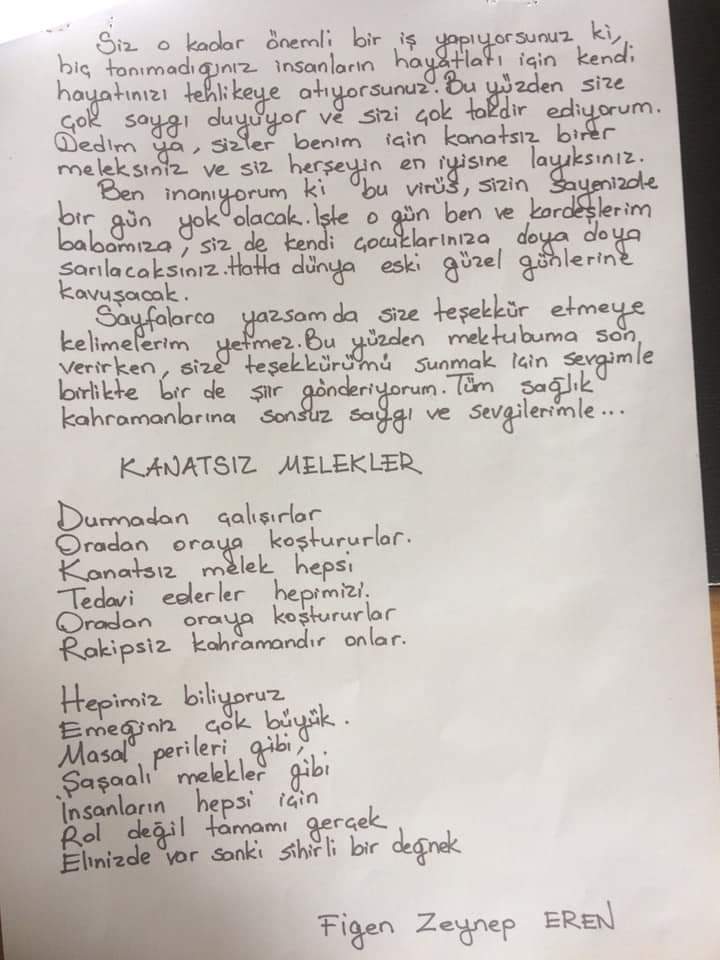 Siz o kadar önemli bir iş yapıyorsunuz ki,
hiç tanımadığınız insanların hayatları için kendi
hayatınızı tehlikeye atıyorsunuz. Bu yüzden size
çok saygı duyuyor ve sizi çok takdir ediyorum.
Dedim ya, sizler benim için kanatsız birer
meleksiniz ve siz herşeyin en iyisine layıksınız.
Ben inanıyorum ki bu virüs, sizin sayenizde
bir gün yok olacak. İşte o gün ben ve kardeşlerim
babamıza, siz de kendi çocuklarınıza doya doya
sarılacaksınız. Hatta dünya eski güzel günlerine
kavuşacak.
Sayfalarca yazsam da size teşekkür etmeye
kelimelerim yetmez. Bu yüzden mektubuma son
verirken, size teşekkürümü sunmak için sevgimle
birlikte bir de şiir gönderiyorum. Tüm sağlık
kahramanlarına sonsuz saygı ve sevgilerimle...
KANATSIZ MELEKLER
Durmadan çalışırlar
Oradan oraya koştururlar.
Kanatsız melek hepsi
Tedavi ederler hepimizi.
Oradan oraya koştururlar
Rakipsiz kahramandır onlar.
Hepimiz biliyoruz
Emeğiniz çok büyük.
Masal perileri gibi,
Şaşaalı melekler gibi
İnsanların hepsi için
Rol değil tamamı gerçek
Elinizde var sanki sihirli bir değnek
Figen Zeynep EREN